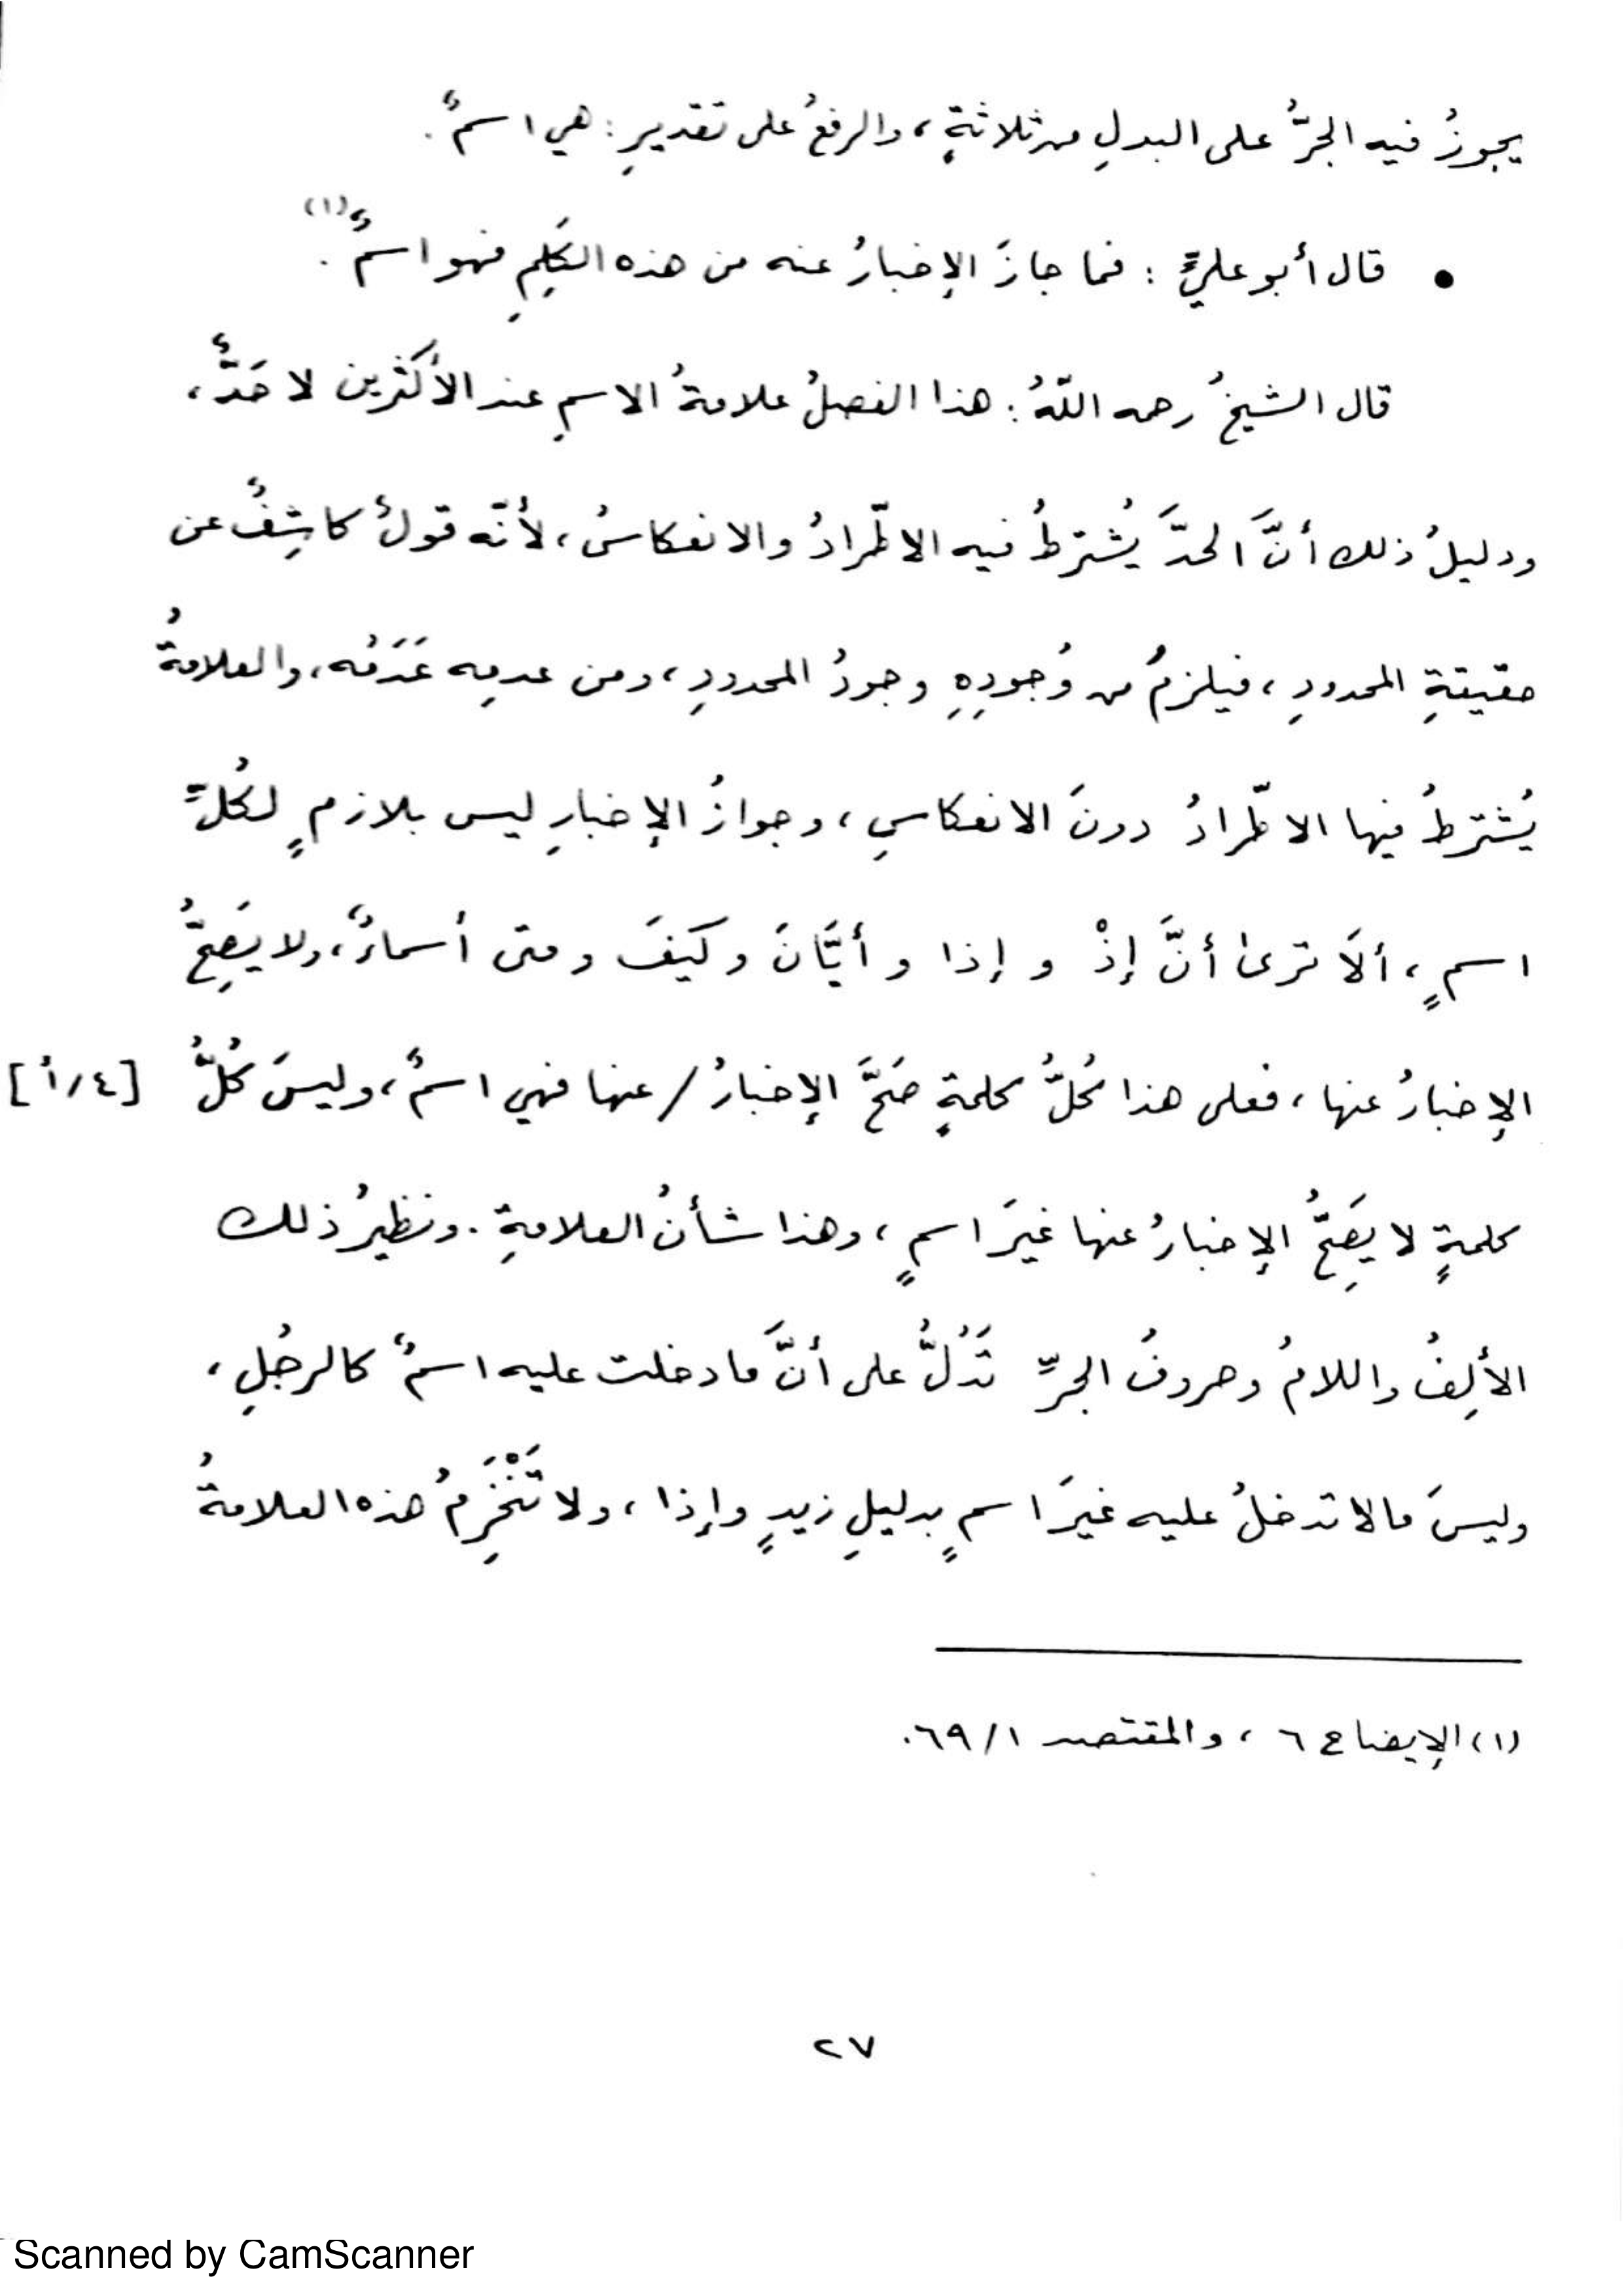 يجوزُ فيه الجرُّ على البدلِ من ثلاثةٍ، والرفعُ على تقديرِ: هي اسمٌ.
• قال أبو عليٍّ : فما جازَ الإخبارُ عنه من هذه الكَلِمِ فهو اسمٌ(١).
قال الشيخُ رحمه اللّهُ: هذا الفصلُ علامةُ الاسمِ عند الأكثرين لا حَدٌّ،
ودليلُ ذلك أنَّ الحدَّ يُشترطُ فيه الاطّرادُ والانعكاسُ، لأنّه قولٌ كاشِفٌ عن
حقيقةِ المحدودِ، فيلزمُ من وُجودِهِ وجودُ المحدودِ، ومن عدمِه عَدَمُه، والعلامةُ
يُشترطُ فيها الاطّرادُ دونَ الانعكاسِ، وجوازُ الإخبارِ ليس بلازمٍ لكُلِّ
اسمٍ، ألَا ترى أنَّ إذْ وإذا وأيَّانَ وكيفَ ومتى أسماءٌ، ولا يَصِحُّ
الإخبارُ عنها، فعلى هذا كُلُّ كلمةٍ صَحَّ الإخبارُ/ عنها فهي اسمٌ، وليسَ كُلُّ [٤/أ]
كلمةٍ لا يَصِحُّ الإخبارُ عنها غيرَ اسمٍ، وهذا شأنُ العلامةِ. ونظيرُ ذلك
الألِفُ واللامُ وحروفُ الجرِّ تَدُلُّ على أنَّ ما دخلت عليه اسمٌ كالرجُلِ،
وليسَ ما لا تدخلُ عليه غيرَ اسمٍ بدليلِ زيدٍ وإذا، ولا تَنْخَرِمُ هذه العلامةُ
(١) الإيضاح ٦ ، والمقتصد ١/ ٦٩.
٢٧
Scanned by CamScanner